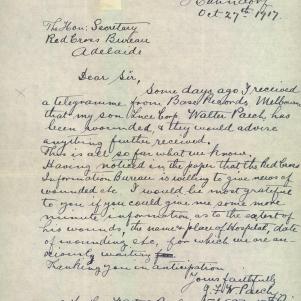 Hahndorf
Oct 27th 1917.
The Hon: Secretary
Red Cross Bureau
Adelaide
Dear Sir,
Some days ago I received
a telegramme from Base Records, Melbourne
that my son Lance Corp. Walter Paech, has
been wounded, & they would advise
anything further received,
This is all so far we know,
Having noticed in the paper that the Red Cross
Information Bureau is willing to give news of
wounded etc. I would be most grateful
to you if you could give me some more
minute information as to the extent of
his wounds, the name & place of Hospital, date
of wounding etc, for which we are an-
xiously waiting
Thanking you in anticipation
Yours faithfully
W. Paech